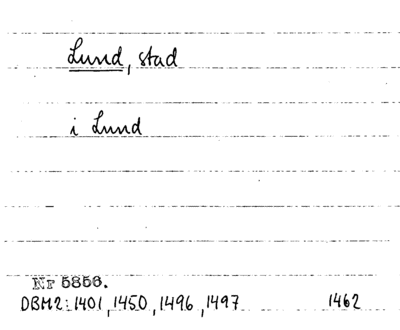 Lund, stad
i Lund
Nr 5856.
DBM2: 1401, 1450, 1496, 1497 1462